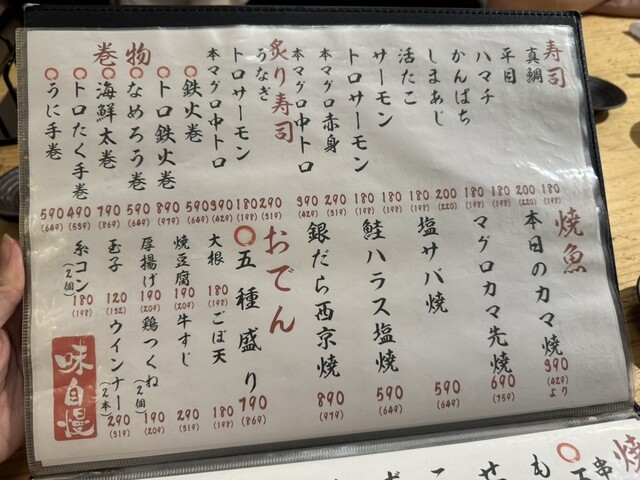 寿司
真鯛 180 (198)
平目 200 (220)
ハマチ 180 (198)
かんぱち 180 (198)
しまあじ 200 (220)
活たこ 180 (198)
サーモン 180 (198)
トロサーモン 180 (198)
本マグロ赤身 290 (319)
本マグロ中トロ 390 (429)
炙り寿司
うなぎ 290 (319)
トロサーモン 180 (198)
本マグロ中トロ 390 (429)
巻物
鉄火巻 590 (649)
トロ鉄火巻 890 (979)
なめろう巻 590 (649)
海鮮太巻 790 (869)
トロたく手巻 490 (539)
うに手巻 590 (649)
焼魚
本日のカマ焼 390 (429) より
マグロカマ先焼 690 (759)
塩サバ焼 590 (649)
鮭ハラス塩焼 590 (649)
銀だら西京焼 890 (979)
おでん
五種盛り 790 (869)
大根 180 (198)
ごぼ天 180 (198)
焼豆腐 190 (209)
牛すじ 290 (319)
厚揚げ 190 (209)
鶏つくね(2個) 190 (209)
玉子 120 (132)
ウインナー(2本) 290 (319)
糸コン(2個) 180 (198)
味自慢
焼
串